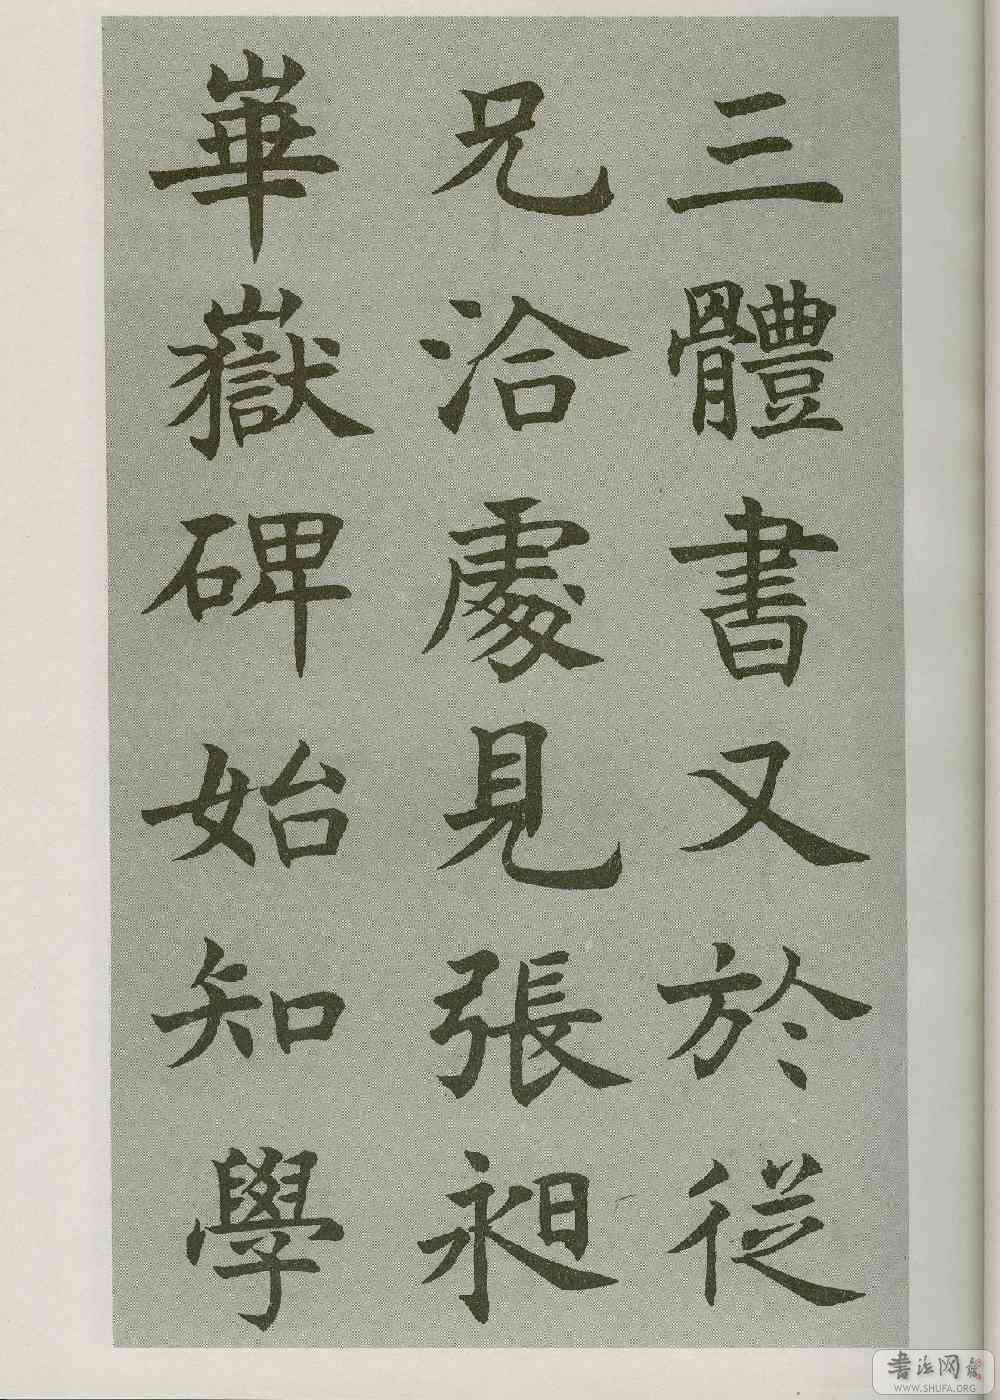 三體書又於從
兄洽處見張昶
華嶽碑始知學
書法网
WWW.SHUFA.ORG